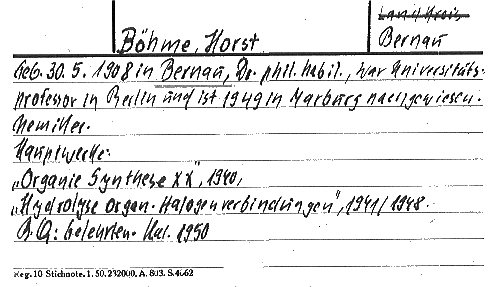 Landkreis
Böhme, Horst
Bernau
Geb. 30. 5. 1908 in Bernau, Dr. phil. habil., war Universitäts-
professor in Berlin und ist 1949 in Marburg nachgewiesen.
Chemiker.
Hauptwerke:
„Organic Synthese XX", 1940,
„Hydrolyse Organ. Halogenverbindungen", 1941/1948.
B.Q: Gelehrten-Kal. 1950
Reg. 10 Stichnote. 1. 50. 232000. A. 803. S. 4662